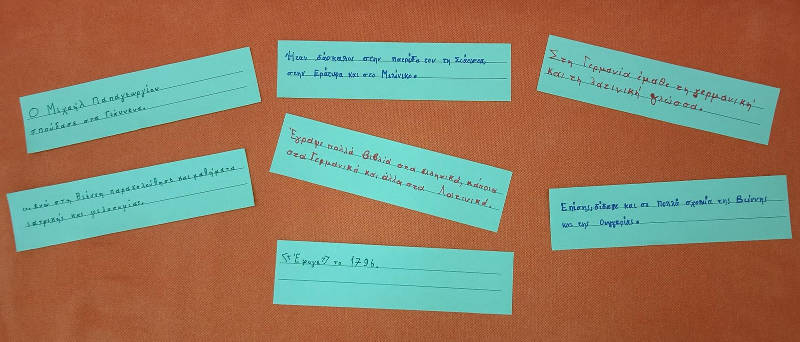 Ο Μιχαήλ Παπαγεωργίου
σπούδασε στα Γιάννενα.
Ήταν δάσκαλος στην πατρίδα του τη Σιάτιστα,
στην Εράτυρα και στο Μελένικο.
Στη Γερμανία έμαθε τη γερμανική
και τη λατινική γλώσσα.
... ενώ στη Βιέννη παρακολούθησε και μαθήματα
ιατρικής και φιλοσοφίας.
Έγραψε πολλά βιβλία στα ελληνικά, κάποια
στα Γερμανικά και άλλα στα Λατινικά.
Επίσης, δίδαξε και σε πολλά σχολεία της Βιέννης
και της Ουγγαρίας.
το 1796.